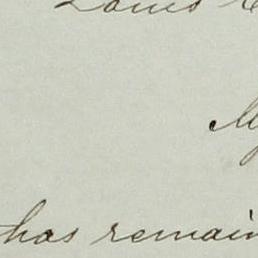 Louis
My
has remain